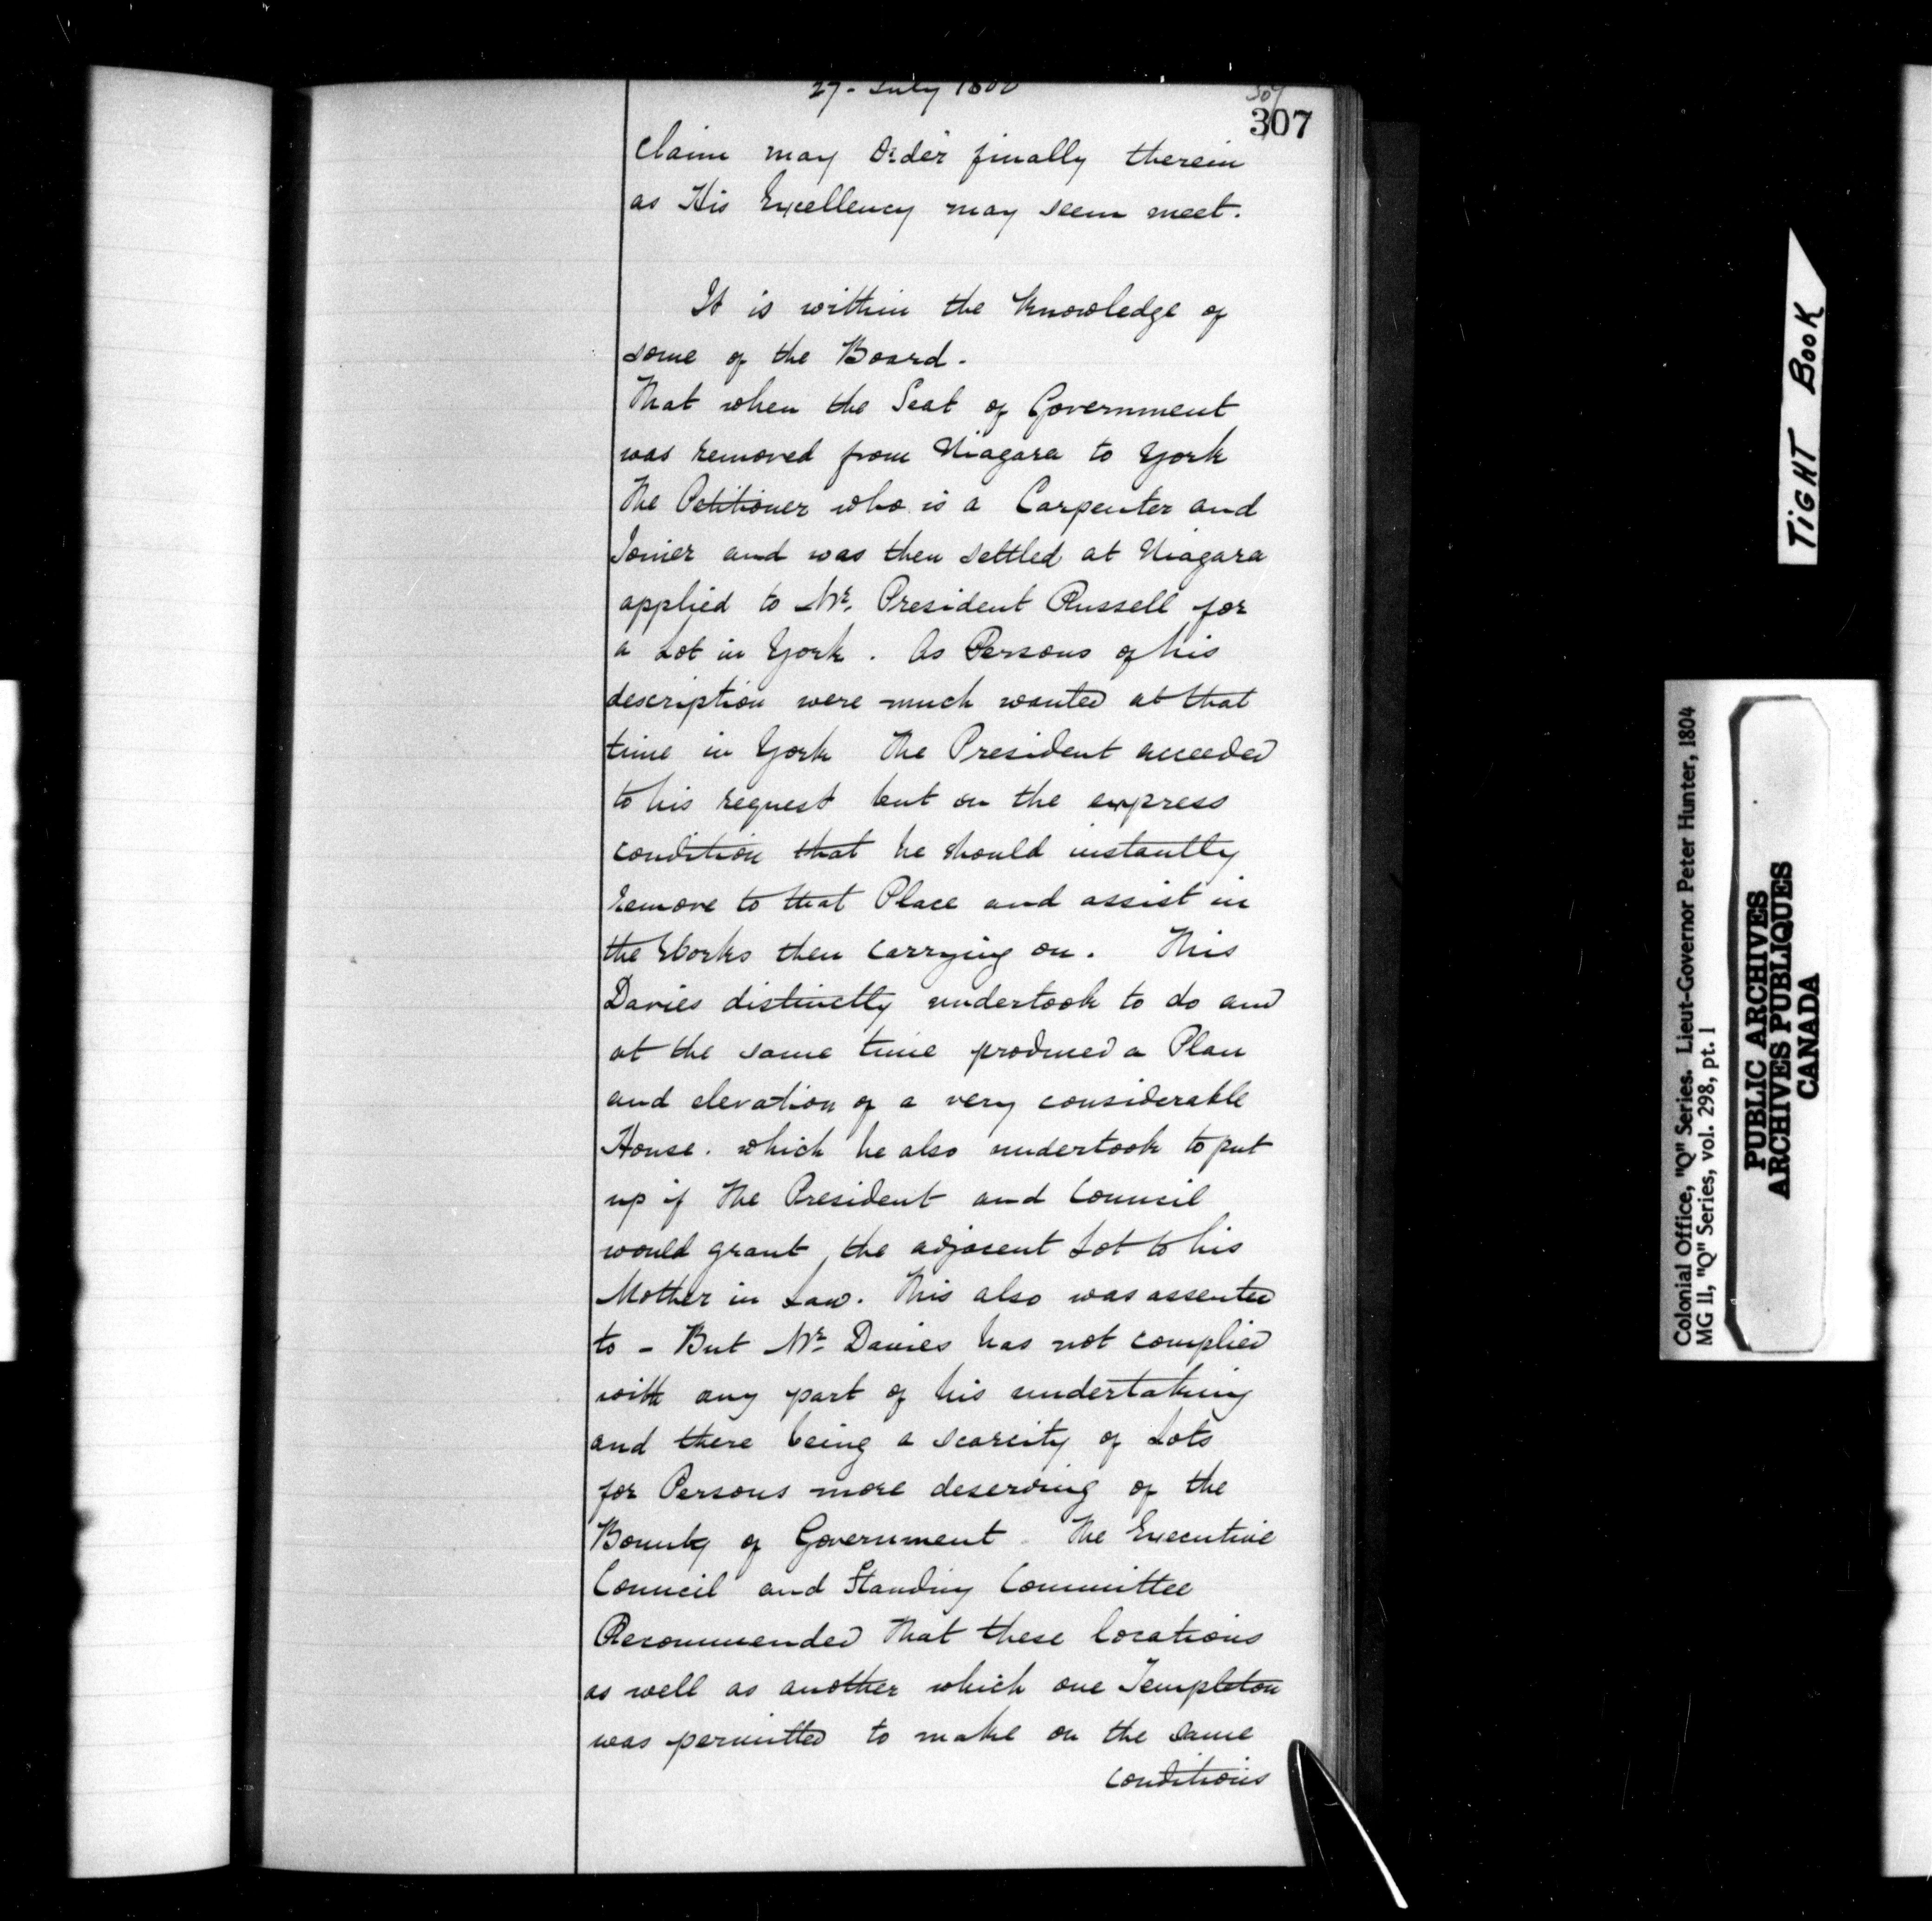 27- July 1800
307
307
Claim may Order finally therein
as His Excellency may seem meet.
It is within the Knowledge of
some of the Board.
That when the Seat of Government
was removed from Niagara to York
The Petitioner who is a Carpenter and
Joiner and was then settled at Niagara
applied to Mr. President Russell for
a Lot in York. As Persons of his
description were much wanted at that
time in York The President acceded
to his request but on the express
condition that he should instantly
remove to that Place and assist in
the Works then carrying on. This
Davies distinctly undertook to do and
at the same time produced a Plan
and elevation of a very considerable
House. which he also undertook to put
up if The President and Council
would grant the adjacent Lot to his
Mother in Law. This also was assented
to - But Mr. Davies has not complied
with any part of his undertaking
and there being a scarcity of Lots
for Persons more deserving of the
Bounty of Government - The Executive
Council and Standing Committee
Recommended That these locations
as well as another which one Templeton
was permitted to make on the same
conditions
TIGHT BOOK
Colonial Office, "Q" Series. Lieut-Governor Peter Hunter, 1804
MG 11, "Q" Series, vol. 298, pt. 1
PUBLIC ARCHIVES
ARCHIVES PUBLIQUES
CANADA